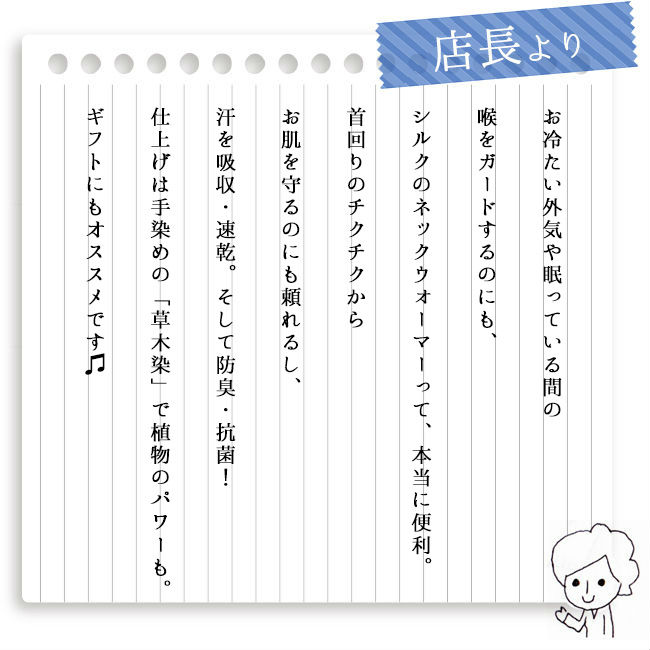 店長より
お冷たい外気や眠っている間の
喉をガードするのにも、
シルクのネックウォーマーって、本当に便利。
首回りのチクチクから
お肌を守るのにも頼れるし、
汗を吸収・速乾。そして防臭・抗菌！
仕上げは手染めの「草木染」で植物のパワーも。
ギフトにもオススメです♫